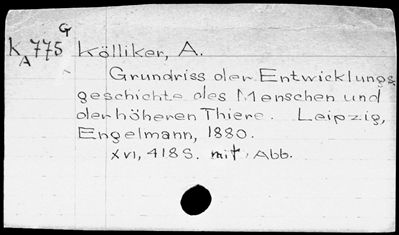 G
K 775 Kölliker, A.
A
Grundriss der Entwicklungs-
geschichte des Menschen und
der höheren Thiere. Leipzig,
Engelmann, 1880.
XVI, 418 S. mit Abb.